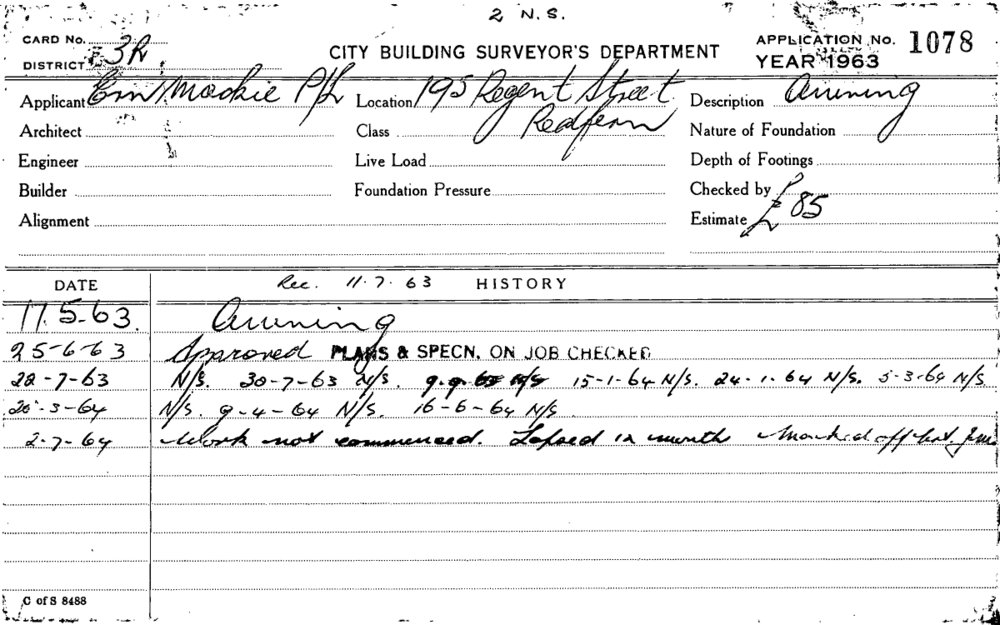 2 N.S.
CARD No.
DISTRICT 3R.
CITY BUILDING SURVEYOR'S DEPARTMENT
APPLICATION No. 1078
YEAR 1963
Applicant Mackie P/L Location 195 Regent Street Redfern Description Awning
Architect Class Nature of Foundation
Engineer Live Load Depth of Footings
Builder Foundation Pressure Checked by
Alignment Estimate £85
DATE Rec. 11.7.63 HISTORY
11.5-63. Awning
25-6-63 Approved PLANS & SPECN. ON JOB CHECKED
22-7-63 N/S. 30-7-63 N/S. 9.9.63 N/S 15-1-64 N/S. 24-1-64 N/S. 5-3-64 N/S
20-3-64 N/S. 9-4-64 N/S. 16-6-64 N/S
2-7-64 Work not commenced. Lapsed 12 month Marked off
C of S 8488